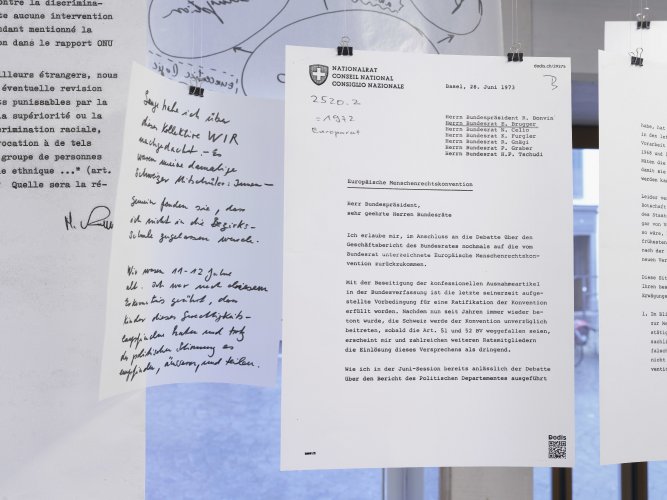 ontre la discrimina-
te aucune intervention
ndant mentionné la
on dans le rapport ONU
illeurs étrangers, nous
éventuelle revision
ts punissables par la
a supériorité ou la
rimination raciale,
vocation à de tels
groupe de personnes
e ethnique ..." (art.
Quelle sera la ré-
Lange habe ich über
dieses Kollektive WIR
nachgedacht. - Es
waren meine damalige
Schweizer Mitschüler:Innen -
Gemein fanden sie, dass
ich nicht in die Bezirks-
schule zugelassen wurde.
Wir waren 11-12 Jahre
alt. Ich war nach
Erkenntnis gerührt, dass
Kinder dieses Ungerechtigkeits-
empfinden haben und trotz
der politischen Stimmung es
empfinden, äussern, und teilen.
NATIONALRAT
CONSEIL NATIONAL
CONSIGLIO NAZIONALE
dodis.ch/39375
Basel, 28. Juni 1973
B
2520.2
- 1972
Europarat
Herrn Bundespräsident R. Bonvin
Herrn Bundesrat E. Brugger
Herrn Bundesrat N. Celio
Herrn Bundesrat K. Furgler
Herrn Bundesrat R. Gnägi
Herrn Bundesrat P. Graber
Herrn Bundesrat H.P. Tschudi
Europäische Menschenrechtskonvention
Herr Bundespräsident,
sehr geehrte Herren Bundesräte
Ich erlaube mir, im Anschluss an die Debatte über den
Geschäftsbericht des Bundesrates nochmals auf die vom
Bundesrat unterzeichnete Europäische Menschenrechtskon-
vention zurückzukommen.
Mit der Beseitigung der konfessionellen Ausnahmeartikel
in der Bundesverfassung ist die letzte seinerzeit aufge-
stellte Vorbedingung für eine Ratifikation der Konvention
erfüllt worden. Nachdem nun seit Jahren immer wieder be-
tont wurde, die Schweiz werde der Konvention unverzüglich
beitreten, sobald die Art. 51 und 52 BV weggefallen seien,
erscheint mir und zahlreichen weiteren Ratsmitgliedern
die Einlösung dieses Versprechens als dringend.
Wie ich in der Juni-Session bereits anlässlich der Debatte
über den Bericht des Politischen Departementes ausgeführt
Dodis
habe, hat
in der letz
Vorarbeit
1968 und
Leider we
Botschaft
des Staat
gar von V
so wäre,
frühesten
nach der
neuen Ver
Diese Sit
Ihren bea
Erwägunge
1. Im Bl